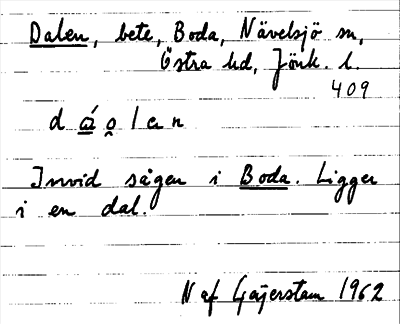 Dalen, bete, Boda, Nävelsjö sn,
Östra hd, Jönk. l.
409
d á̲ o̲̯ l e n
Invid sågen i Boda. Ligger
i en dal.
N af Geijerstam 1962